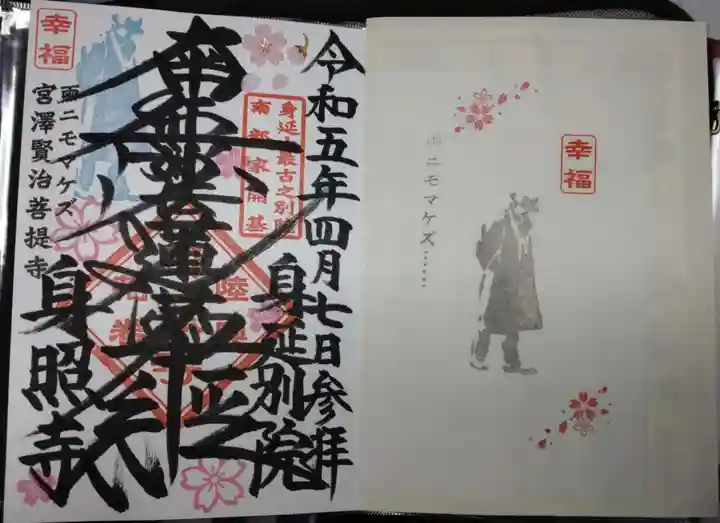 令和五年四月七日参拝
身延別院
身延山最古之別院
南部家開基
南無妙法蓮華経
身照寺
雨ニモマケズ
宮澤賢治菩提寺
幸福
幸福
雨ニモマケズ……